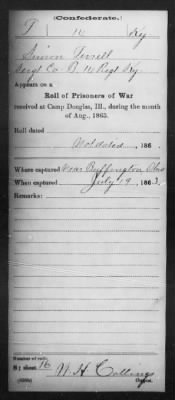 (Confederate.)
T 14 Ky
Simon Terrell
Sergt Co. B. 14 Regt Ky
Appears on a
Roll of Prisoners of War
received at Camp Douglas, Ill., during the month
of Aug., 1863.
Roll dated
Not dated , 186 .
Where captured Near Buffington Ohio
When captured July 19 , 186 3.
Remarks:
Number of roll:
By sheet 16
W. H. Collings
Copyist.